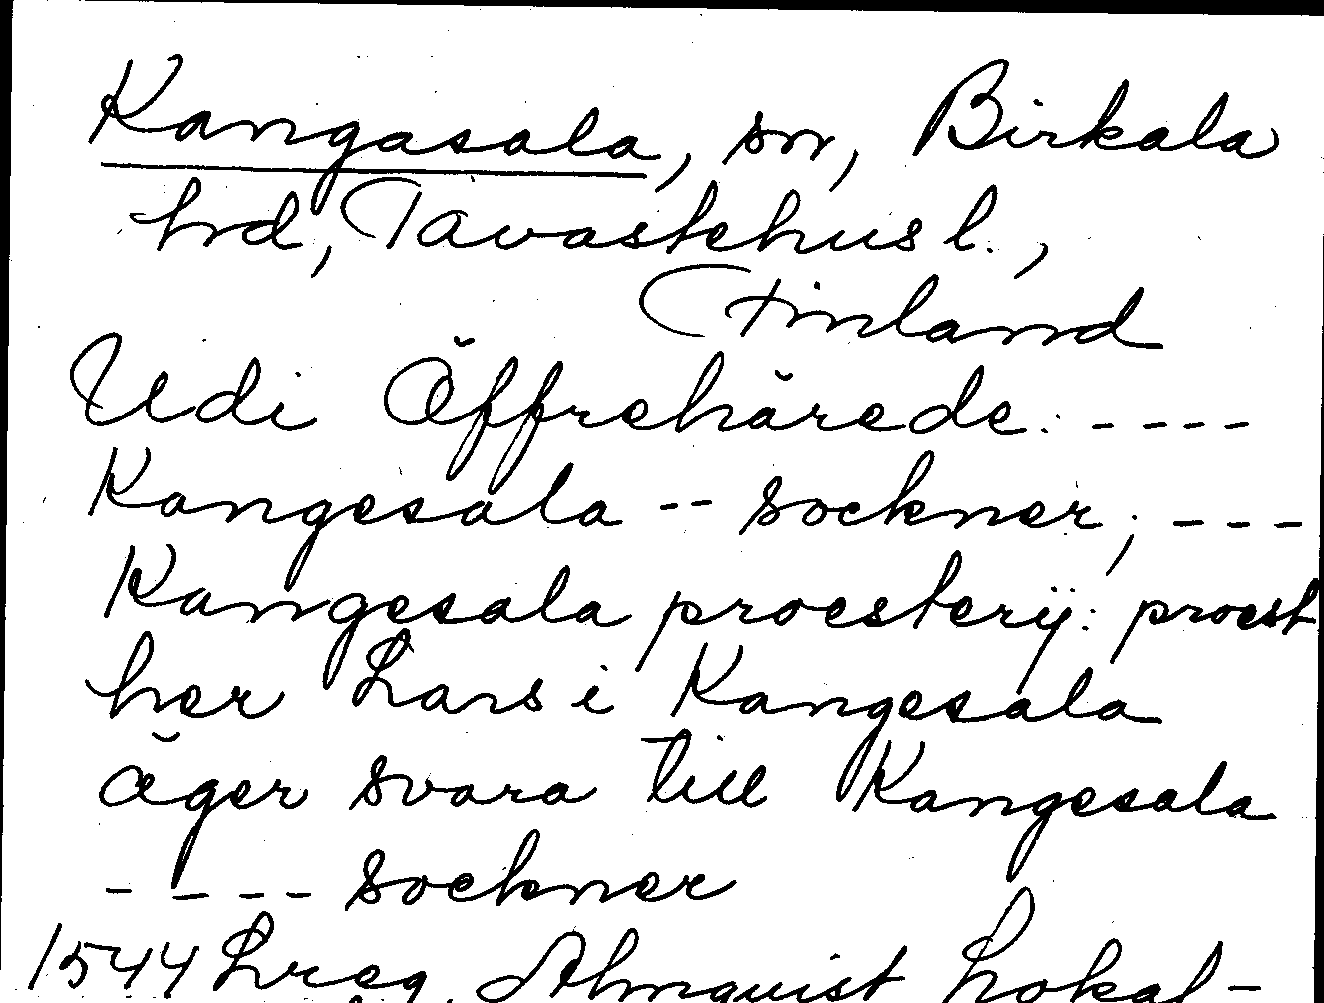 Kangasala, sn, Birkala
hrd, Tavastehus l.,
Finland
Udi Öffrehärede. ----
Kangesala -- sockner, ---
Kangesala proesterij: proest
her Lars i Kangesala
äger svara till Kangesala
---- sockner
1544 Lreg. Almquist Lokal-